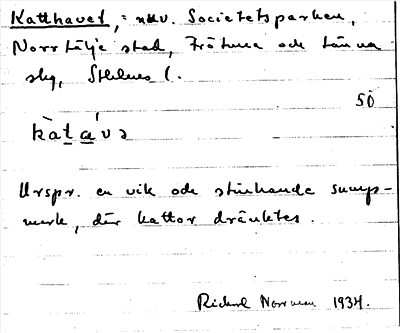 Katthavet, = nuv. Societetsparken,
Norrtälje stad, Frötuna och Länna
skg, Sthlms l.
SÖ
kàtavə
Urspr. en vik och stinkande sump-
mark, där kattor dränktes.
Rickard Norrman 1934.